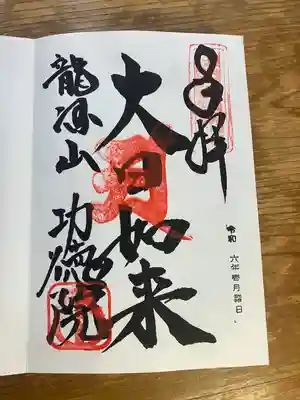 奉拝
令和 六年壱月 日
大日如来
龍源山 功徳院